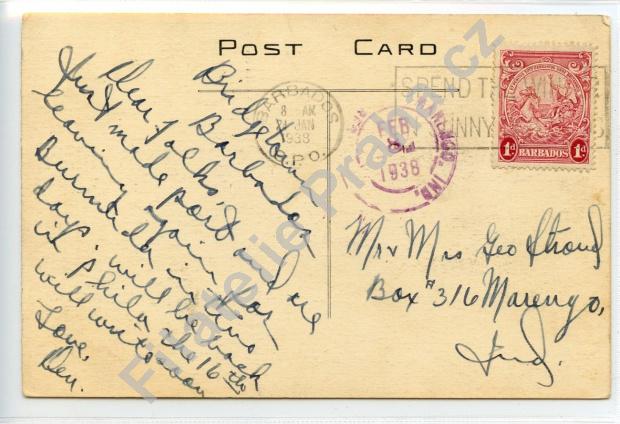 POST CARD
Bridgeton
Barbados
Dear folks,
Just made port and are
leaving again for
Bermuda in two
days, will be back
in Phila the 16th
will write soon
Love,
BARBADOS
8 AK
21 JAN
1938
G.P.O.
SPEND
SUNNY
FEB
1938
MARENGO, IND.
1d BARBADOS 1d
Mr & Mrs Geo Stroud
Box #316 Marengo,
Ind.
Filatelie Praha.cz